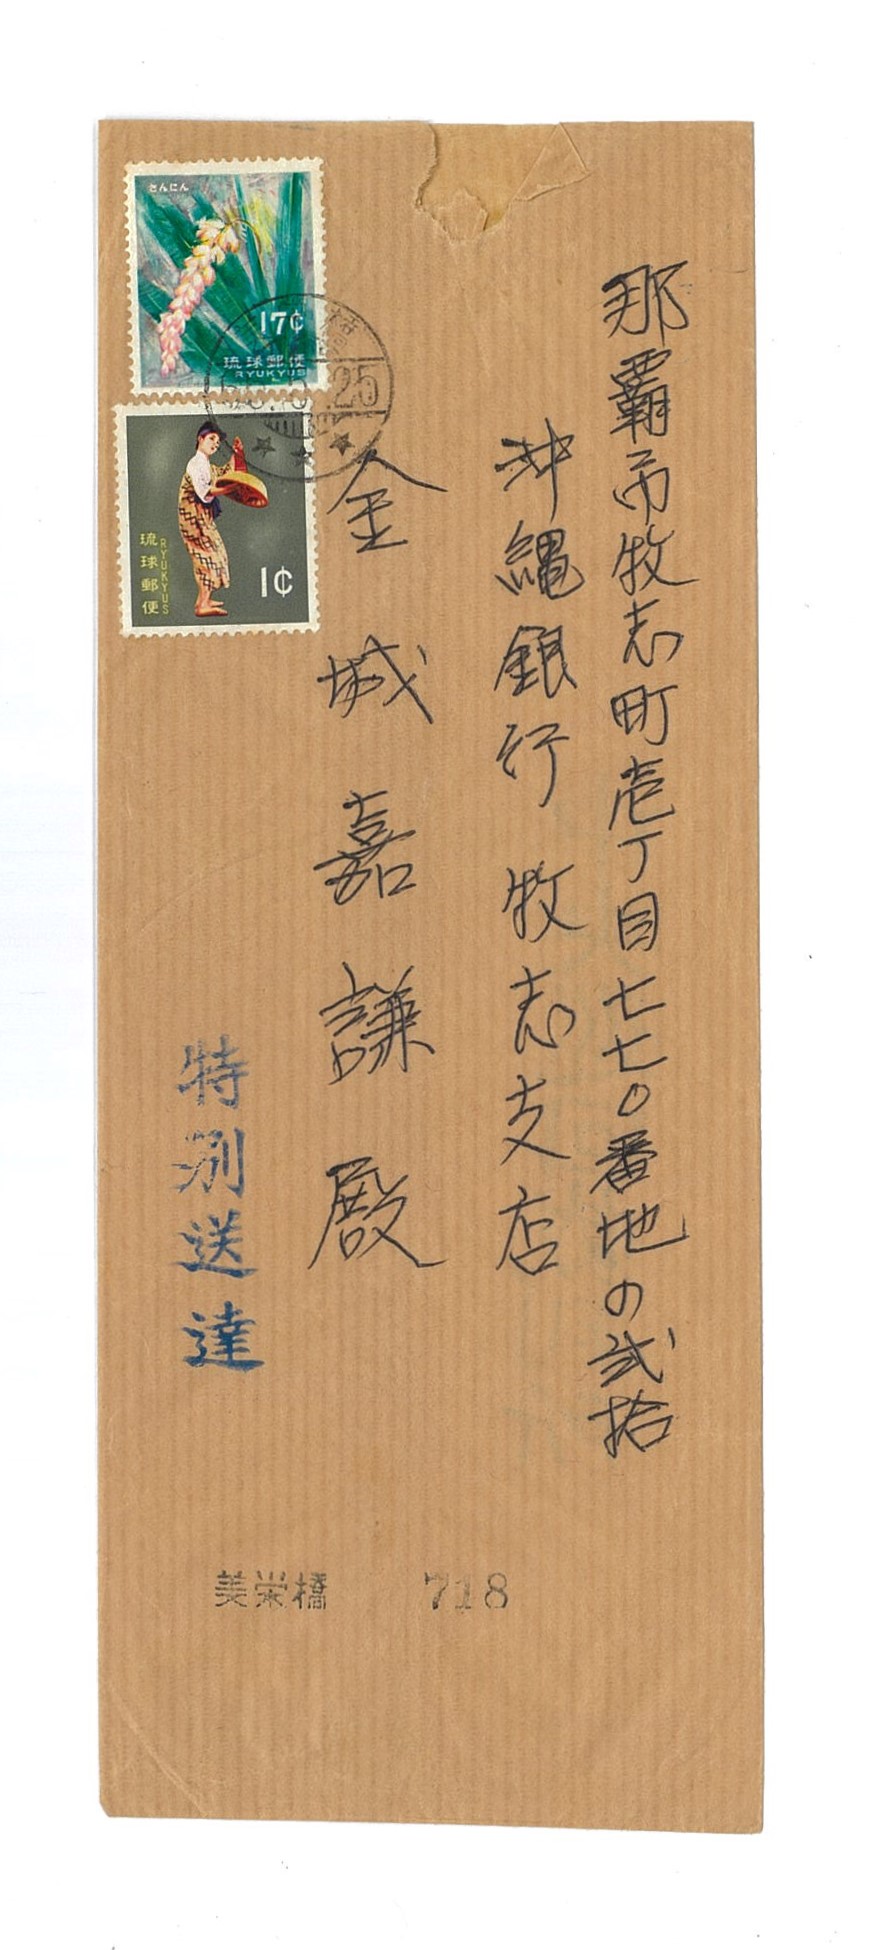 那覇市牧志町壱丁目七七〇番地の弐拾
沖縄銀行 牧志支店
金城嘉謙殿
さんにん
17¢
琉球郵便
RYUKYUS
橋
25
琉球郵便
RYUKYUS
1¢
特別送達
美栄橋 718